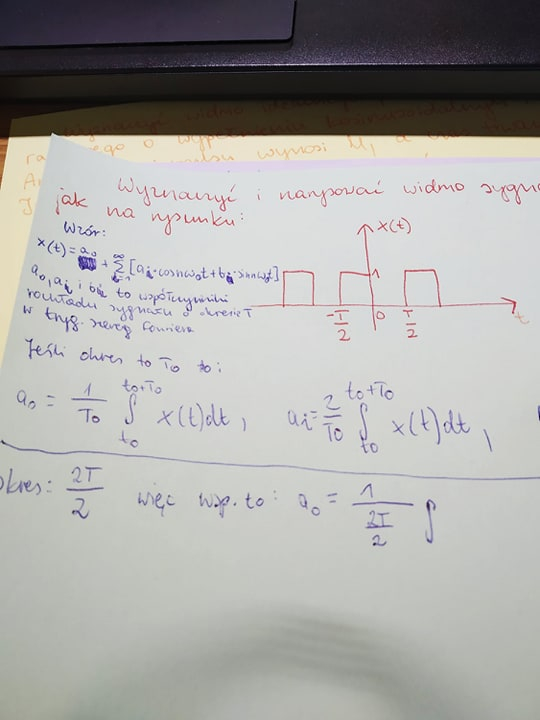 widmo
o wypełnieniu kosinusoidalnym
wynosi U₁ a
Wyznaczyć i narysować widmo sygna
jak na rysunku:
Wzór:
x(t) = a₀ + ∑ [aᵢ·cosnω₀t + bᵢ·sinnω₀t]
a₀, aᵢ i bᵢ to współczynniki
rozkładu sygnału o okresie T
w tryg. szereg Fouriera
x(t)
1
-T/2 0 T/2 t
Jeśli okres to T₀ to:
a₀ = 1/T₀ ∫_{t₀}^{t₀+T₀} x(t)dt, aᵢ = 2/T₀ ∫_{t₀}^{t₀+T₀} x(t)dt,
okres: 2T/2 więc wsp. to: a₀ = 1/(2T/2) ∫